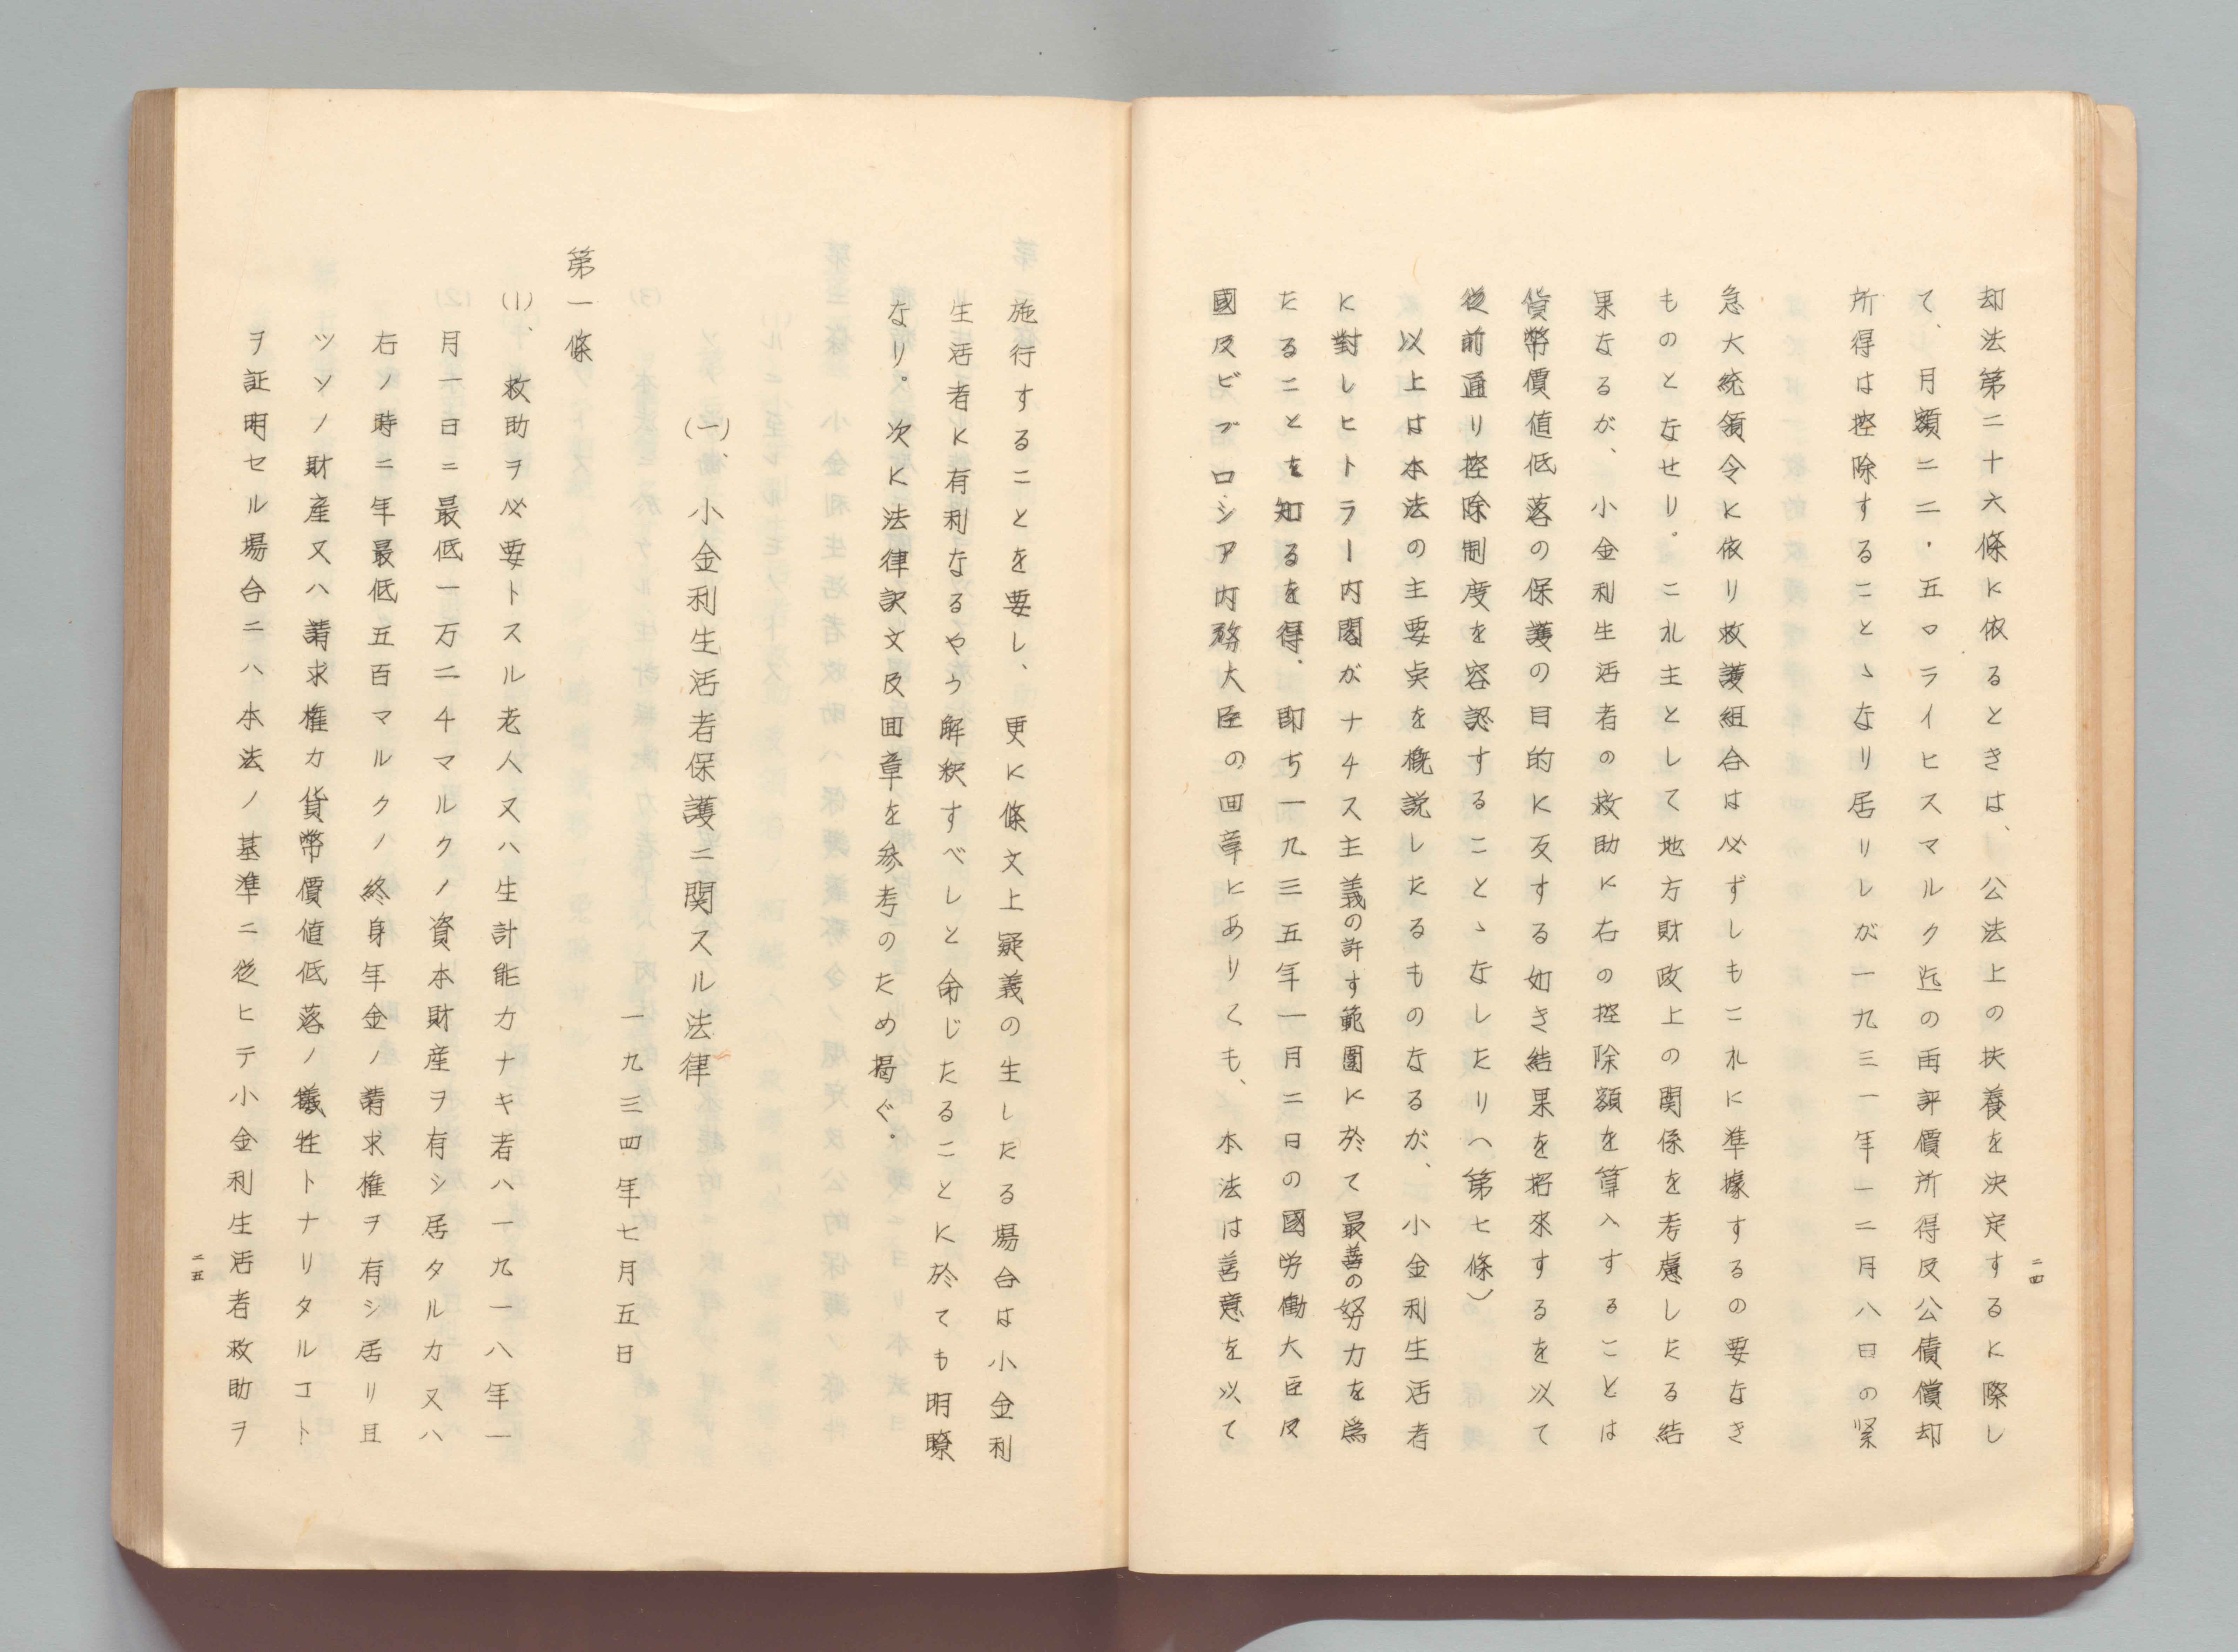 却法第二十六條に依るときは、公法上の扶養を決定するに際し
て、月額二二・五ロライヒスマルク迄の再評價所得反公債償却
所得は控除することゝなり居りしが一九三一年一二月八日の緊
急大統領令に依り救護組合は必ずしもこれに準據するの要なき
ものとなせり。これ主として地方財政上の関係を考慮したる結
果なるが、小金利生活者の救助に右の控除額を算入することは
貨幣價値低落の保護の目的に反する如き結果を招來するを以て
從前通り控除制度を容認することゝなしたり(第七條)
以上は本法の主要点を概説したるものなるが、小金利生活者
に對しヒトラー内閣がナチス主義の許す範圍に於て最善の努力を爲
たることを知るを得、即ち一九三五年一月二日の國労働大臣反
國反ビプロシア内務大臣の囬章にありても、本法は善意を以て
二四
施行することを要し、更に條文上疑義の生したる場合は小金利
生活者に有利なるやう解釈すべしと命じたることに於ても明瞭
なり。次に法律訳文反囬章を参考のため掲ぐ。
(一)、小金利生活者保護ニ関スル法律
一九三四年七月五日
第一條
(1)、救助ヲ必要トスル老人又ハ生計能力ナキ者ハ一九一八年一
月一日ニ最低一万二千マルクノ資本財産ヲ有シ居タルカ又ハ
右ノ時ニ年最低五百マルクノ終身年金ノ請求権ヲ有シ居リ且
ツソノ財産又ハ請求権カ貨幣價値低落ノ犠牲トナリタルコト
ヲ証明セル場合ニハ本法ノ基準ニ從ヒテ小金利生活者救助ヲ
二五